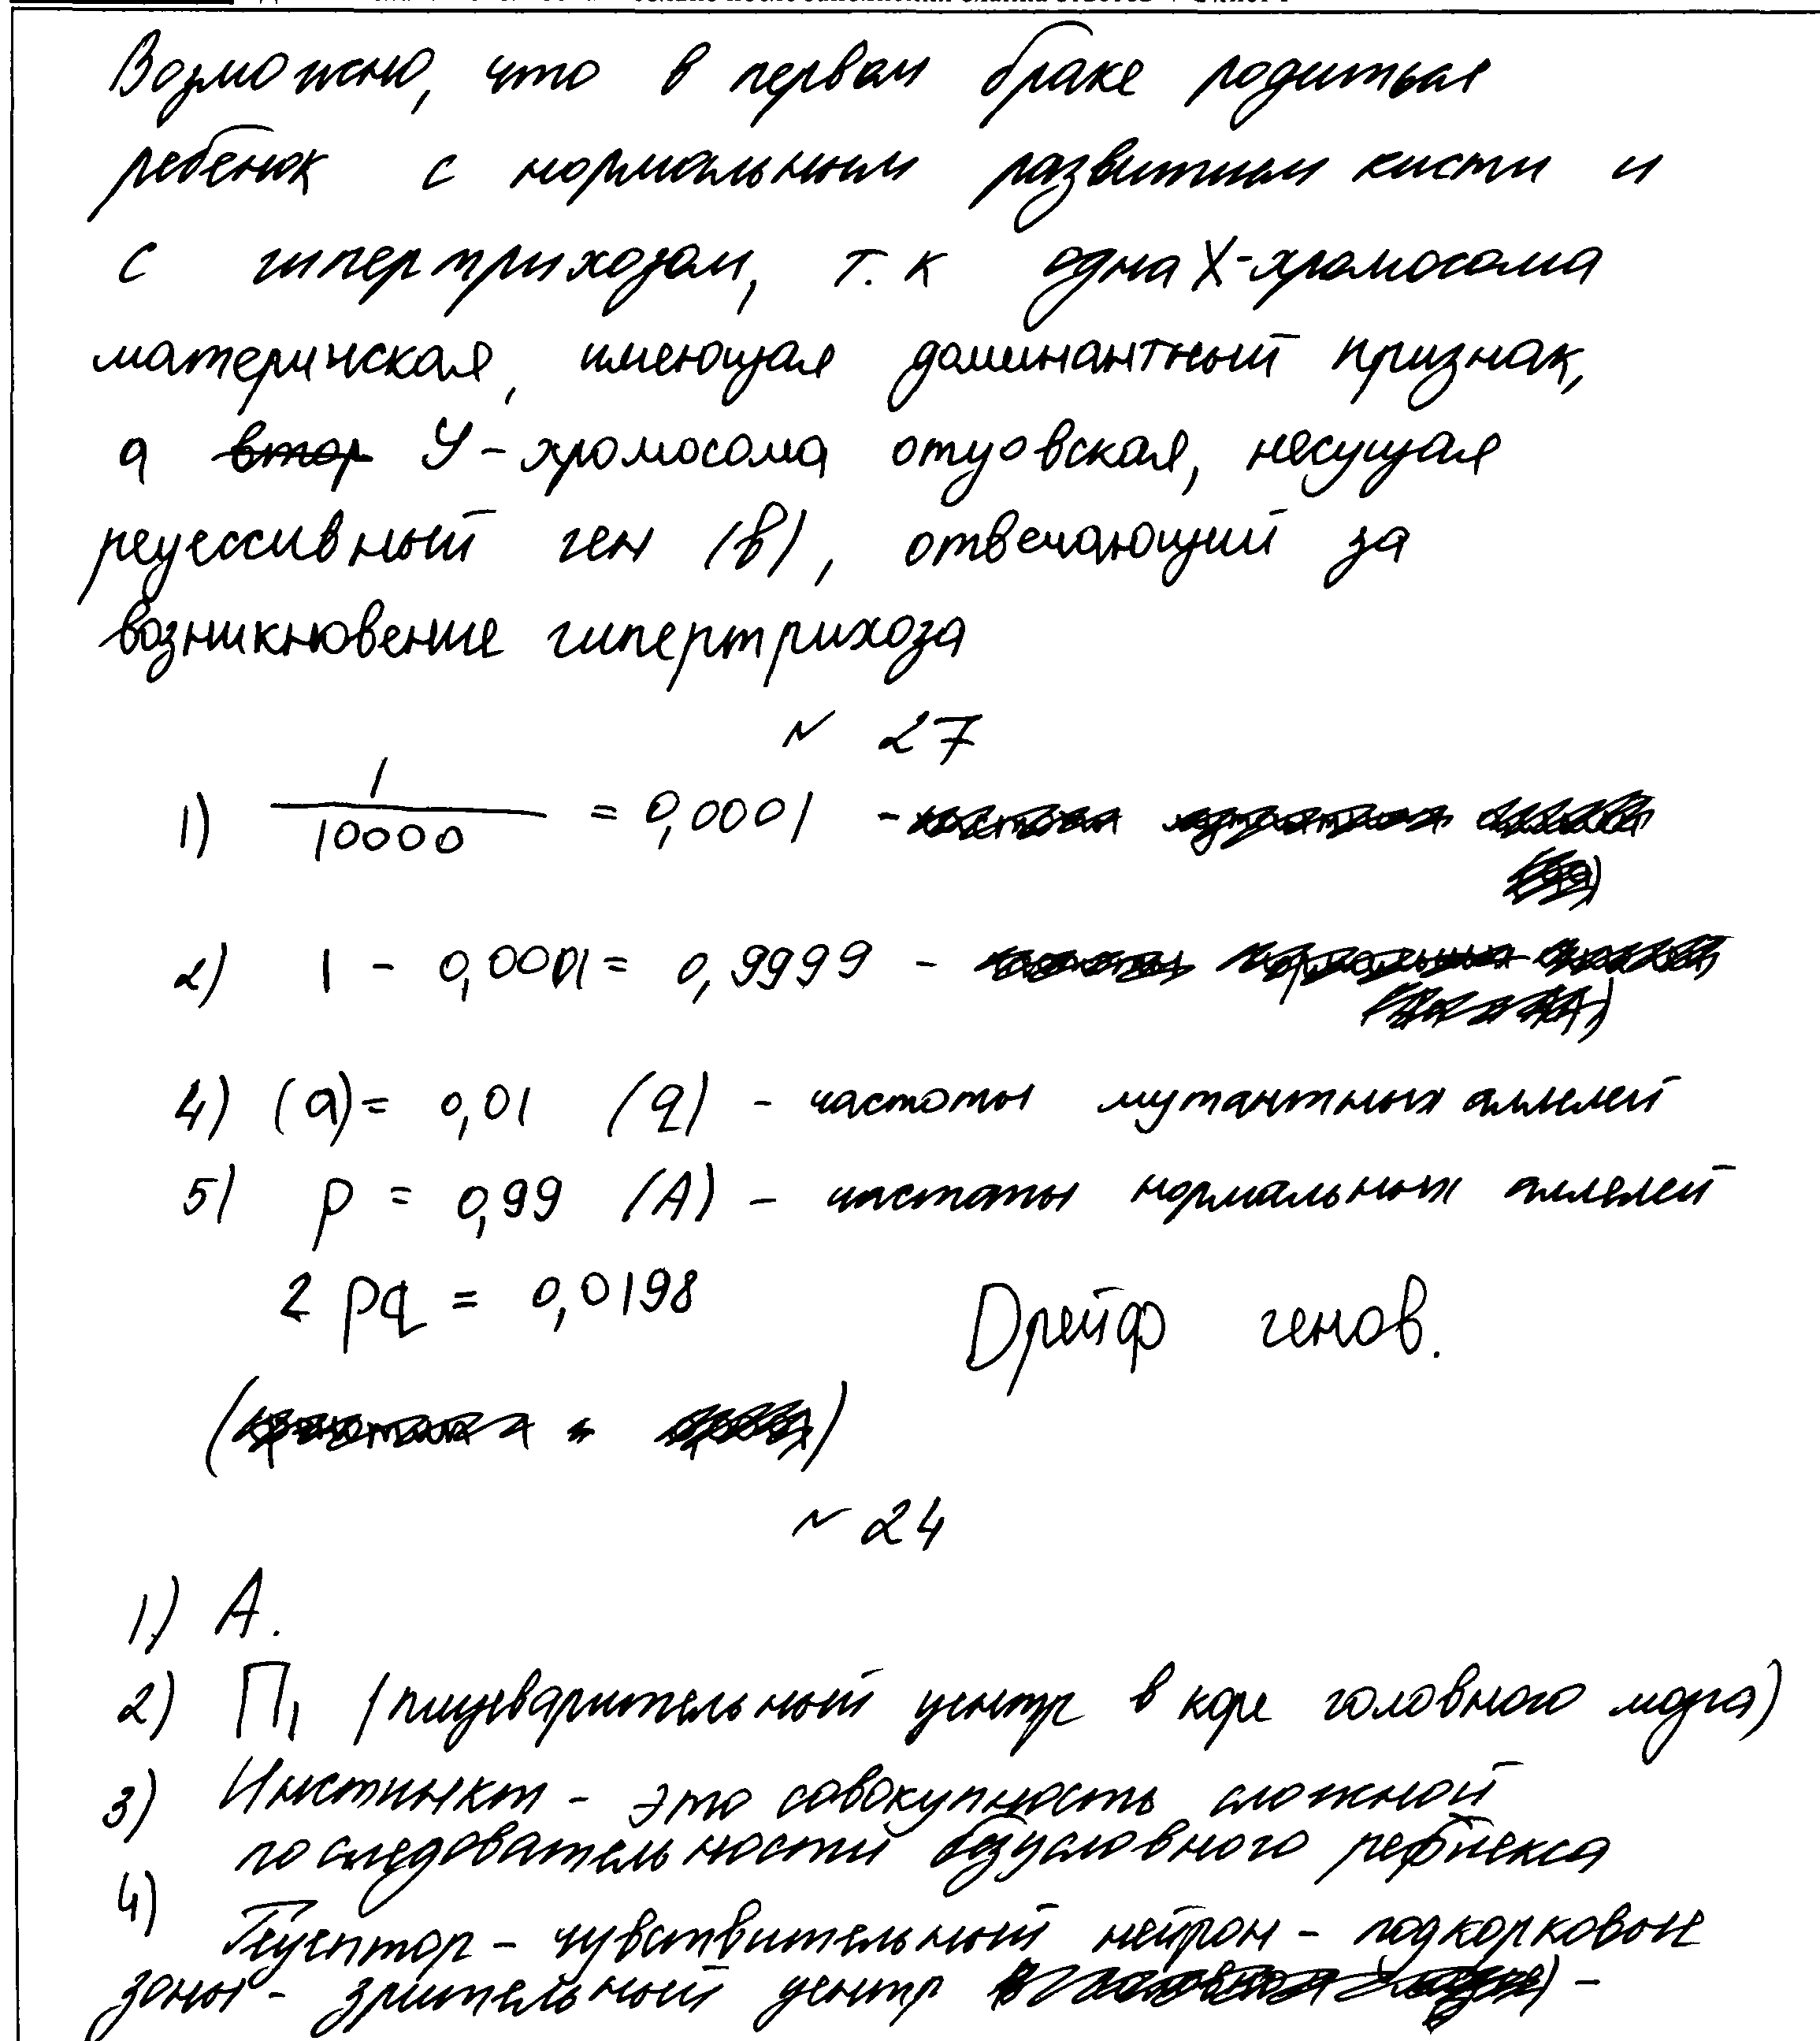 Возможно, что в первом браке родиться
ребенок с нормальным развитием кисти и
с гипертрихозом, т.к одна X-хромосома
материнская, имеющая доминантный признак,
а втор У-хромосома отцовская, несущая
рецессивный ген (b), отвечающий за
возникновение гипертрихоза
№ 27
1) 1/10000 = 0,0001 -
2) 1 - 0,0001 = 0,9999 -
4) (a) = 0,01 (q) - частоты мутантных аллелей
5) p = 0,99 (A) - частоты нормальных аллелей
2 pq = 0,0198 Дрейф генов.
№ 24
1) А.
2) П1 (пищеварительный центр в коре головного мозга)
3) Инстинкт - это совокупность сложной
последовательности безусловного рефлекса
4) Рецептор - чувствительный нейрон - подкорковые
зоны - зрительный центр -